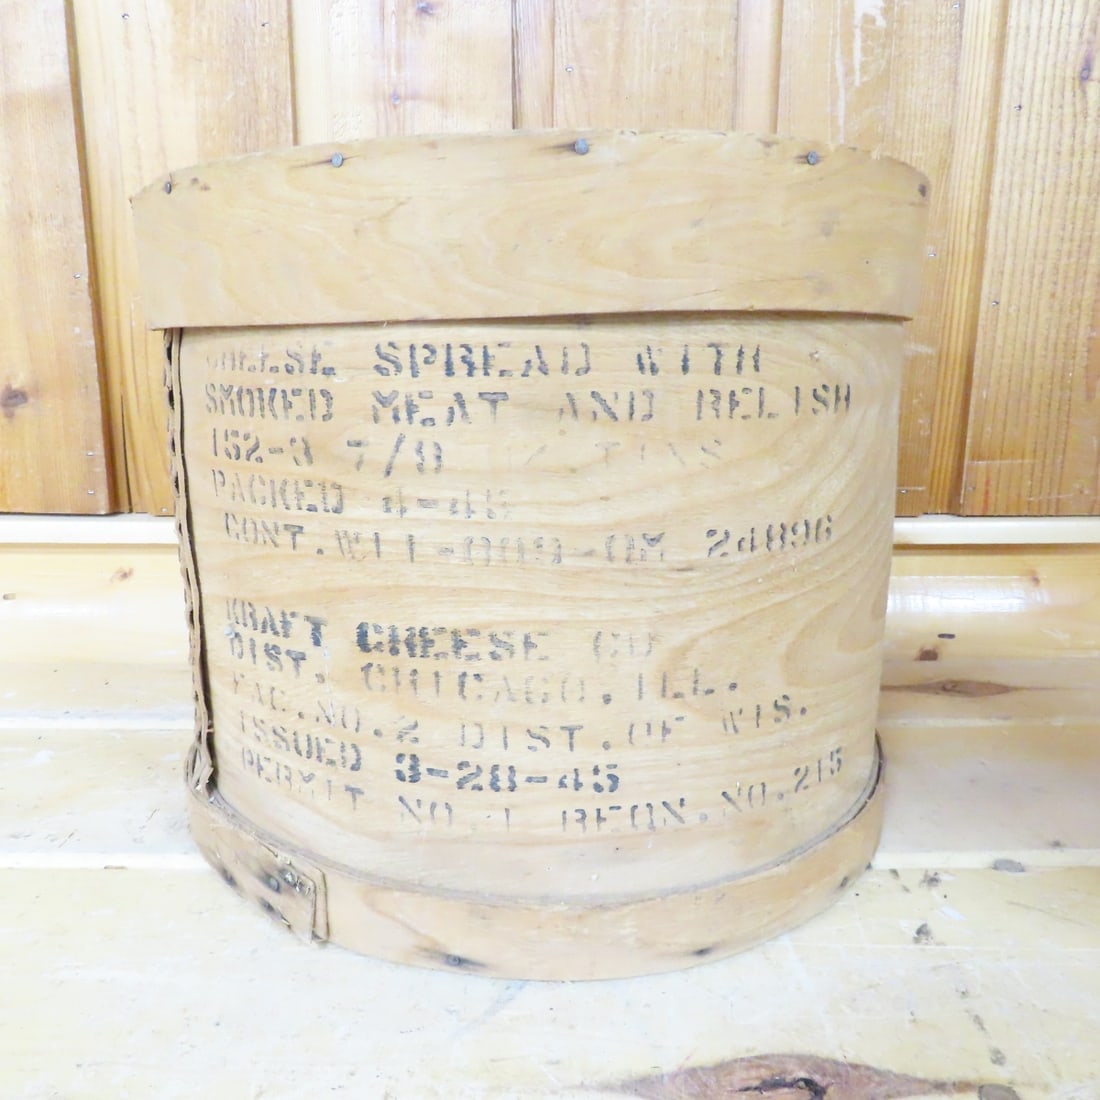 CHEESE SPREAD WITH
SMOKED MEAT AND RELISH
152-3 7/8 TINS
PACKED 4-45
CONT. W11-009-QM 24896
KRAFT CHEESE CO
DIST. CHICAGO. ILL.
FAC. NO. 2 DIST. OF WIS.
ISSUED 3-28-45
PERMIT NO. 1 REQN. NO. 215